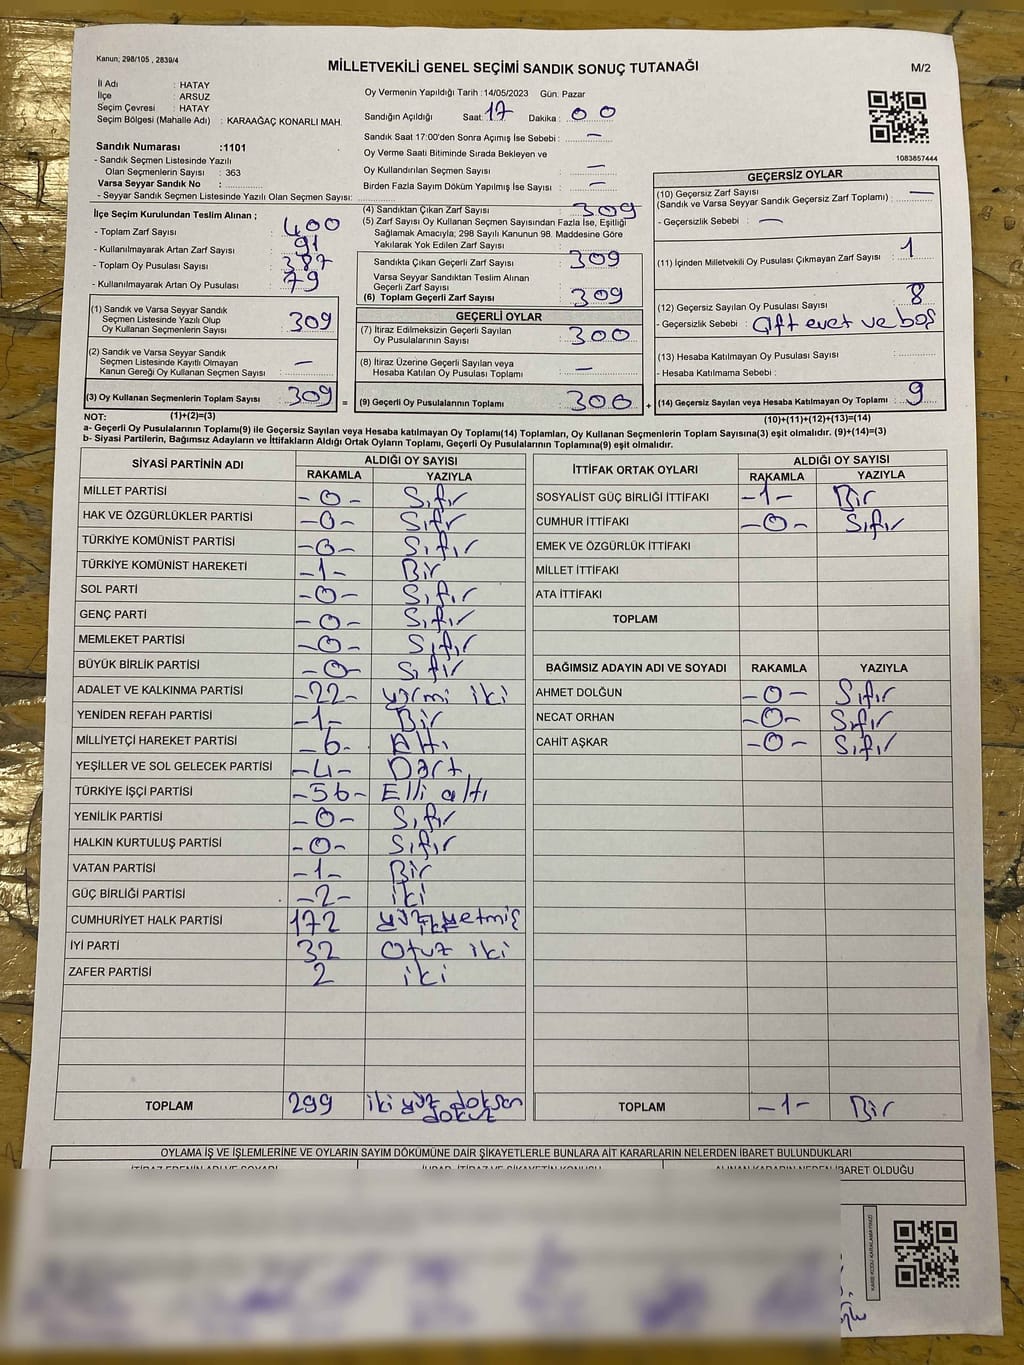 Kanun; 298/105 , 2839/4
MİLLETVEKİLİ GENEL SEÇİMİ SANDIK SONUÇ TUTANAĞI
M/2
İl Adı : HATAY
İlçe : ARSUZ
Seçim Çevresi : HATAY
Seçim Bölgesi (Mahalle Adı) : KARAAĞAÇ KONARLI MAH.
Sandık Numarası :1101
- Sandık Seçmen Listesinde Yazılı
Olan Seçmenlerin Sayısı : 363
Varsa Seyyar Sandık No :
- Seyyar Sandık Seçmen Listesinde Yazılı Olan Seçmen Sayısı:
Oy Vermenin Yapıldığı Tarih :14/05/2023 Gün: Pazar
Sandığın Açıldığı Saat: 17 Dakika : 00
Sandık Saat 17:00'den Sonra Açımış İse Sebebi : —
Oy Verme Saati Bitiminde Sırada Bekleyen ve
Oy Kullandırılan Seçmen Sayısı : —
Birden Fazla Sayım Döküm Yapılmış İse Sayısı : —
1083657444
İlçe Seçim Kurulundan Teslim Alınan ;
- Toplam Zarf Sayısı : 400
- Kullanılmayarak Artan Zarf Sayısı : 91
- Toplam Oy Pusulası Sayısı : 387
- Kullanılmayarak Artan Oy Pusulası : 79
(1) Sandık ve Varsa Seyyar Sandık
Seçmen Listesinde Yazılı Olup
Oy Kullanan Seçmenlerin Sayısı : 309
(2) Sandık ve Varsa Seyyar Sandık
Seçmen Listesinde Kayıtlı Olmayan
Kanun Gereği Oy Kullanan Seçmen Sayısı : —
(3) Oy Kullanan Seçmenlerin Toplam Sayısı : 309 =
(4) Sandıktan Çıkan Zarf Sayısı : 309
(5) Zarf Sayısı Oy Kullanan Seçmen Sayısından Fazla İse, Eşitliği
Sağlamak Amacıyla; 298 Sayılı Kanunun 98. Maddesine Göre
Yakılarak Yok Edilen Zarf Sayısı :
Sandıkta Çıkan Geçerli Zarf Sayısı : 309
Varsa Seyyar Sandıktan Teslim Alınan
Geçerli Zarf Sayısı :
(6) Toplam Geçerli Zarf Sayısı : 309
GEÇERLİ OYLAR
(7) İtiraz Edilmeksizin Geçerli Sayılan
Oy Pusulalarının Sayısı : 300
(8) İtiraz Üzerine Geçerli Sayılan veya
Hesaba Katılan Oy Pusulası Toplamı : —
(9) Geçerli Oy Pusulalarının Toplamı : 300 +
GEÇERSİZ OYLAR
(10) Geçersiz Zarf Sayısı
(Sandık ve Varsa Seyyar Sandık Geçersiz Zarf Toplamı) : —
- Geçersizlik Sebebi : —
(11) İçinden Milletvekili Oy Pusulası Çıkmayan Zarf Sayısı : 1
(12) Geçersiz Sayılan Oy Pusulası Sayısı : 8
- Geçersizlik Sebebi : Çift evet ve boş
(13) Hesaba Katılmayan Oy Pusulası Sayısı :
- Hesaba Katılmama Sebebi :
(14) Geçersiz Sayılan veya Hesaba Katılmayan Oy Toplamı : 9
NOT: (1)+(2)=(3)
(10)+(11)+(12)+(13)=(14)
a- Geçerli Oy Pusulalarının Toplamı(9) ile Geçersiz Sayılan veya Hesaba katılmayan Oy Toplamı(14) Toplamları, Oy Kullanan Seçmenlerin Toplam Sayısına(3) eşit olmalıdır. (9)+(14)=(3)
b- Siyasi Partilerin, Bağımsız Adayların ve İttifakların Aldığı Ortak Oyların Toplamı, Geçerli Oy Pusulalarının Toplamına(9) eşit olmalıdır.
SİYASİ PARTİNİN ADI ALDIĞI OY SAYISI
RAKAMLA YAZIYLA
MİLLET PARTİSİ -0- Sıfır
HAK VE ÖZGÜRLÜKLER PARTİSİ -0- Sıfır
TÜRKİYE KOMÜNİST PARTİSİ -0- Sıfır
TÜRKİYE KOMÜNİST HAREKETİ -1- Bir
SOL PARTİ -0- Sıfır
GENÇ PARTİ -0- Sıfır
MEMLEKET PARTİSİ -0- Sıfır
BÜYÜK BİRLİK PARTİSİ -0- Sıfır
ADALET VE KALKINMA PARTİSİ -22- yirmi iki
YENİDEN REFAH PARTİSİ -1- Bir
MİLLİYETÇİ HAREKET PARTİSİ -6- Altı
YEŞİLLER VE SOL GELECEK PARTİSİ -4- Dört
TÜRKİYE İŞÇİ PARTİSİ -56- Elli altı
YENİLİK PARTİSİ -0- Sıfır
HALKIN KURTULUŞ PARTİSİ -0- Sıfır
VATAN PARTİSİ -1- Bir
GÜÇ BİRLİĞİ PARTİSİ -2- iki
CUMHURİYET HALK PARTİSİ 172 yüz yetmiş iki
İYİ PARTİ 32 Otuz iki
ZAFER PARTİSİ 2 iki
TOPLAM 299 iki yüz doksan dokuz
İTTİFAK ORTAK OYLARI ALDIĞI OY SAYISI
RAKAMLA YAZIYLA
SOSYALİST GÜÇ BİRLİĞİ İTTİFAKI -1- Bir
CUMHUR İTTİFAKI -0- Sıfır
EMEK VE ÖZGÜRLÜK İTTİFAKI
MİLLET İTTİFAKI
ATA İTTİFAKI
TOPLAM
BAĞIMSIZ ADAYIN ADI VE SOYADI RAKAMLA YAZIYLA
AHMET DOLĞUN -0- Sıfır
NECAT ORHAN -0- Sıfır
CAHİT AŞKAR -0- Sıfır
TOPLAM -1- Bir
OYLAMA İŞ VE İŞLEMLERİNE VE OYLARIN SAYIM DÖKÜMÜNE DAİR ŞİKAYETLERLE BUNLARA AİT KARARLARIN NELERDEN İBARET BULUNDUKLARI
İTİRAZ EDENİN ADI VE SOYADI İHBAR, İTİRAZ VE ŞİKAYETİN KONUSU ALINAN KARARIN NEDEN İBARET OLDUĞU
KARE KODU KARALAMAYINIZ!